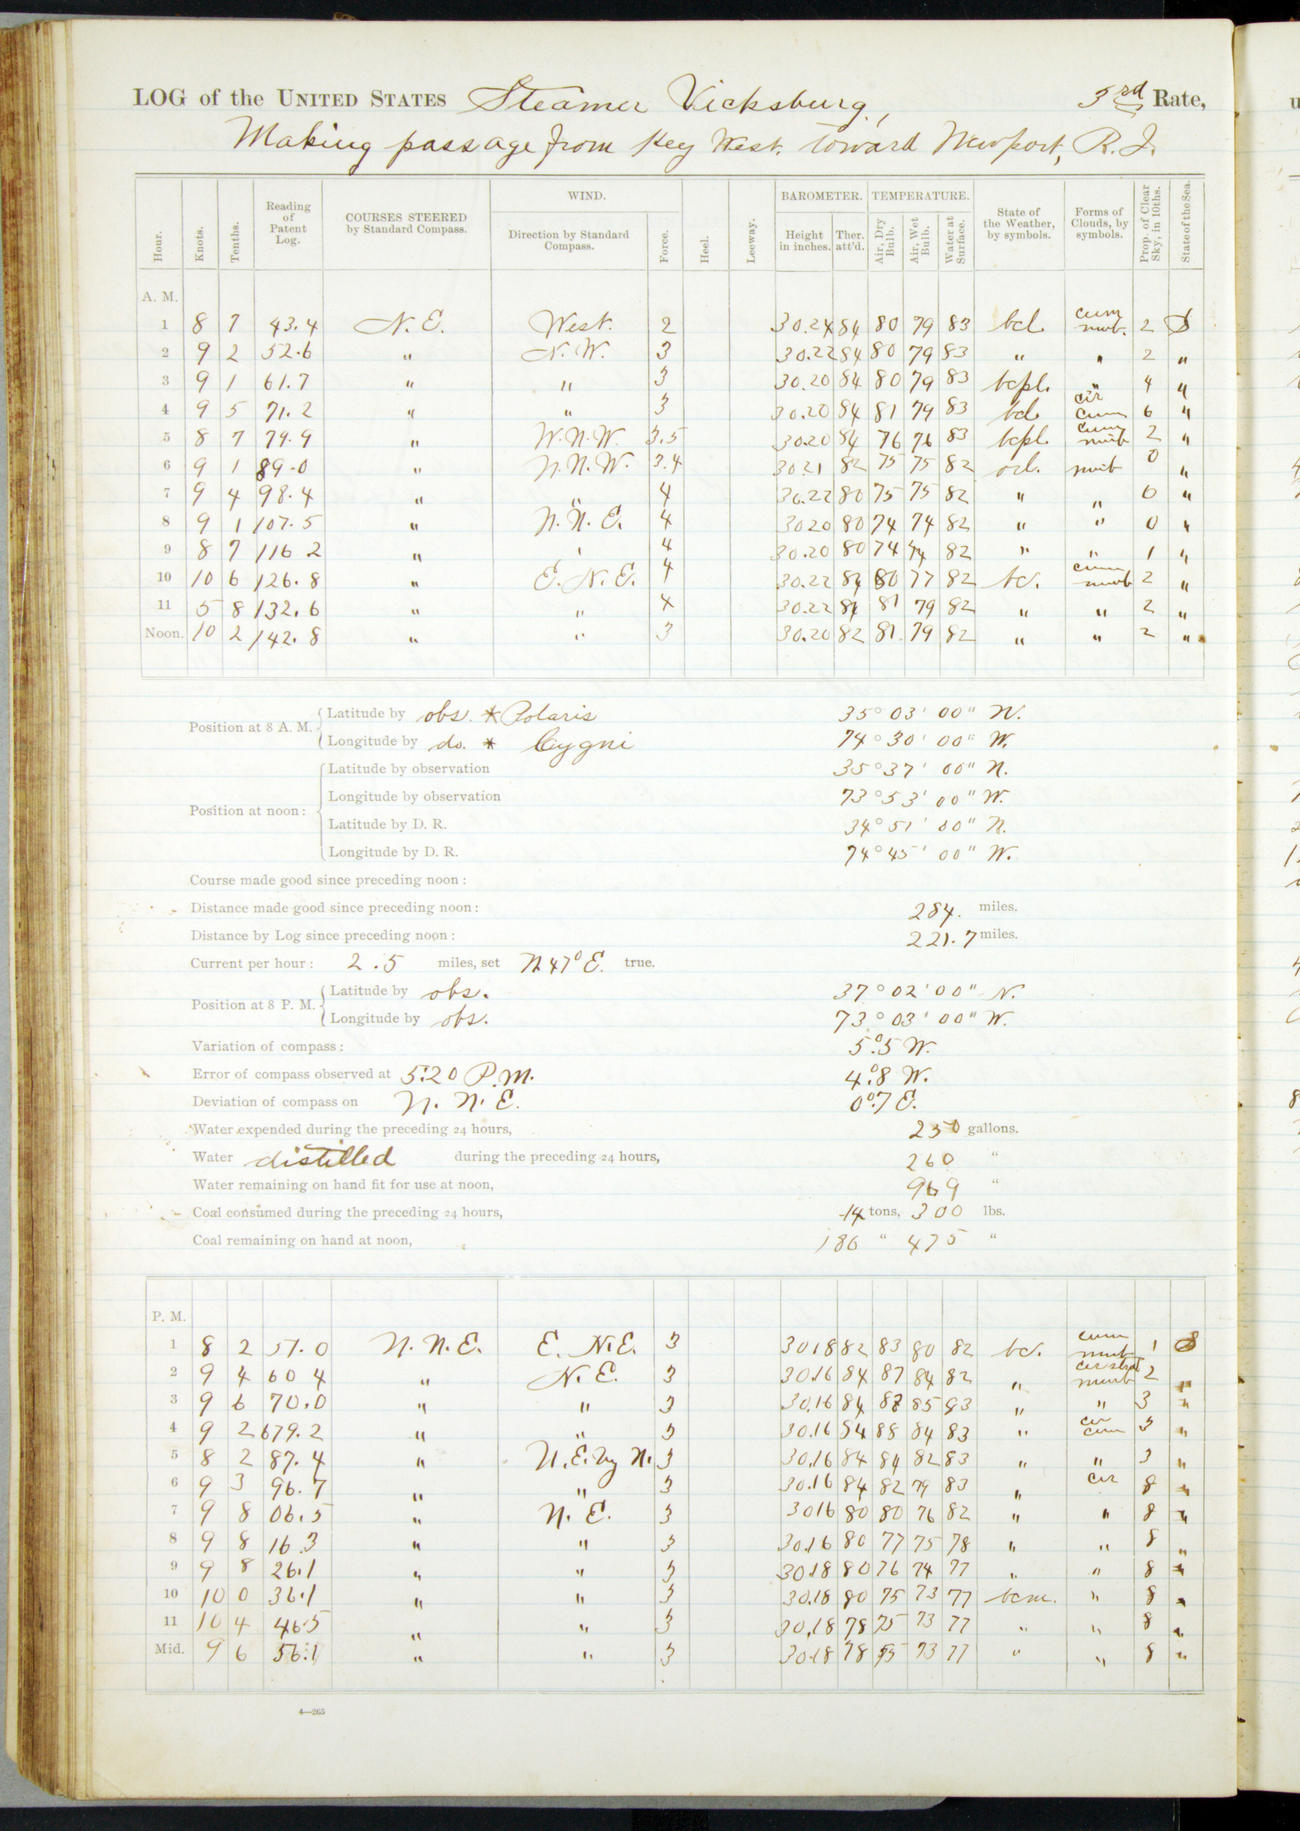 LOG of the UNITED STATES Steamer Vicksburg, 3rd Rate,
Making passage from Key West toward Newport, R.I.
Hour. Knots. Tenths. Reading of Patent Log. COURSES STEERED by Standard Compass. WIND. Direction by Standard Compass. Force. Heel. Leeway. BAROMETER. Height in inches. Ther. att'd. TEMPERATURE. Air, Dry Bulb. Air, Wet Bulb. Water at Surface. State of the Weather, by symbols. Forms of Clouds, by symbols. Prop. of Clear Sky, in 10ths. State of the Sea.
A. M.
1 8 7 43.4 N. E. West. 2 30.24 84 80 79 83 bcl. cum nimb. 2 S
2 9 2 52.6 " N. W. 3 30.22 84 80 79 83 " " 2 "
3 9 1 61.7 " " 3 30.20 84 80 79 83 bcpl. " 4 "
4 9 5 71.2 " " 3 30.20 84 81 79 83 bcl. cir cum 6 "
5 8 7 79.9 " W.N.W. 3.5 30.20 84 76 76 83 bcpl. cum nimb 2 "
6 9 1 89.0 " N.N.W. 3.4 30.21 82 75 75 82 ocl. nimb 0 "
7 9 4 98.4 " " 4 30.22 80 75 75 82 " " 0 "
8 9 1 107.5 " N. N. E. 4 30.20 80 74 74 82 " " 0 "
9 8 7 116.2 " " 4 30.20 80 74 74 82 " " 1 "
10 10 6 126.8 " E. N. E. 4 30.22 84 80 77 82 bc. cum nimb 2 "
11 5 8 132.6 " " 4 30.22 84 81 79 82 " " 2 "
Noon. 10 2 142.8 " " 3 30.20 82 81 79 82 " " 2 "
Position at 8 A. M. Latitude by obs. * Polaris 35° 03' 00" N.
Longitude by do. * Cygni 74° 30' 00" W.
Position at noon: Latitude by observation 35° 37' 00" N.
Longitude by observation 73° 53' 00" W.
Latitude by D. R. 34° 51' 00" N.
Longitude by D. R. 74° 45' 00" W.
Course made good since preceding noon:
Distance made good since preceding noon: 284. miles.
Distance by Log since preceding noon: 221.7 miles.
Current per hour: 2.5 miles, set N 47° E. true.
Position at 8 P. M. Latitude by obs. 37° 02' 00" N.
Longitude by obs. 73° 03' 00" W.
Variation of compass: 5°.5 W.
Error of compass observed at 5:20 P.M. 4°.8 W.
Deviation of compass on N. N. E. 0°.7 E.
Water expended during the preceding 24 hours, 250 gallons.
Water distilled during the preceding 24 hours, 260 "
Water remaining on hand fit for use at noon, 969 "
Coal consumed during the preceding 24 hours, 14 tons, 300 lbs.
Coal remaining on hand at noon, 186 " 475 "
P. M.
1 8 2 51.0 N. N. E. E. N.E. 3 30.18 82 83 80 82 bc. cum nimb 1 S
2 9 4 60 4 " N. E. 3 30.16 84 87 84 82 " cir strat nimb 2 "
3 9 6 70.0 " " 3 30.16 84 88 85 83 " " 3 "
4 9 2 679.2 " " 3 30.16 84 88 84 83 " cir cum 3 "
5 8 2 87.4 " N.E. by N. 3 30.16 84 84 82 83 " " 3 "
6 9 3 96.7 " " 3 30.16 84 82 79 83 " cir 8 "
7 9 8 06.5 " N. E. 3 30 16 80 80 76 82 " " 8 "
8 9 8 16.3 " " 3 30.16 80 77 75 78 " " 8 "
9 9 8 26.1 " " 3 30.18 80 76 74 77 " " 8 "
10 10 0 36.1 " " 3 30.18 80 75 73 77 bcm. " 8 "
11 10 4 46.5 " " 3 30.18 78 75 73 77 " " 8 "
Mid. 9 6 56.1 " " 3 30.18 78 75 73 77 " " 8 "
4—265